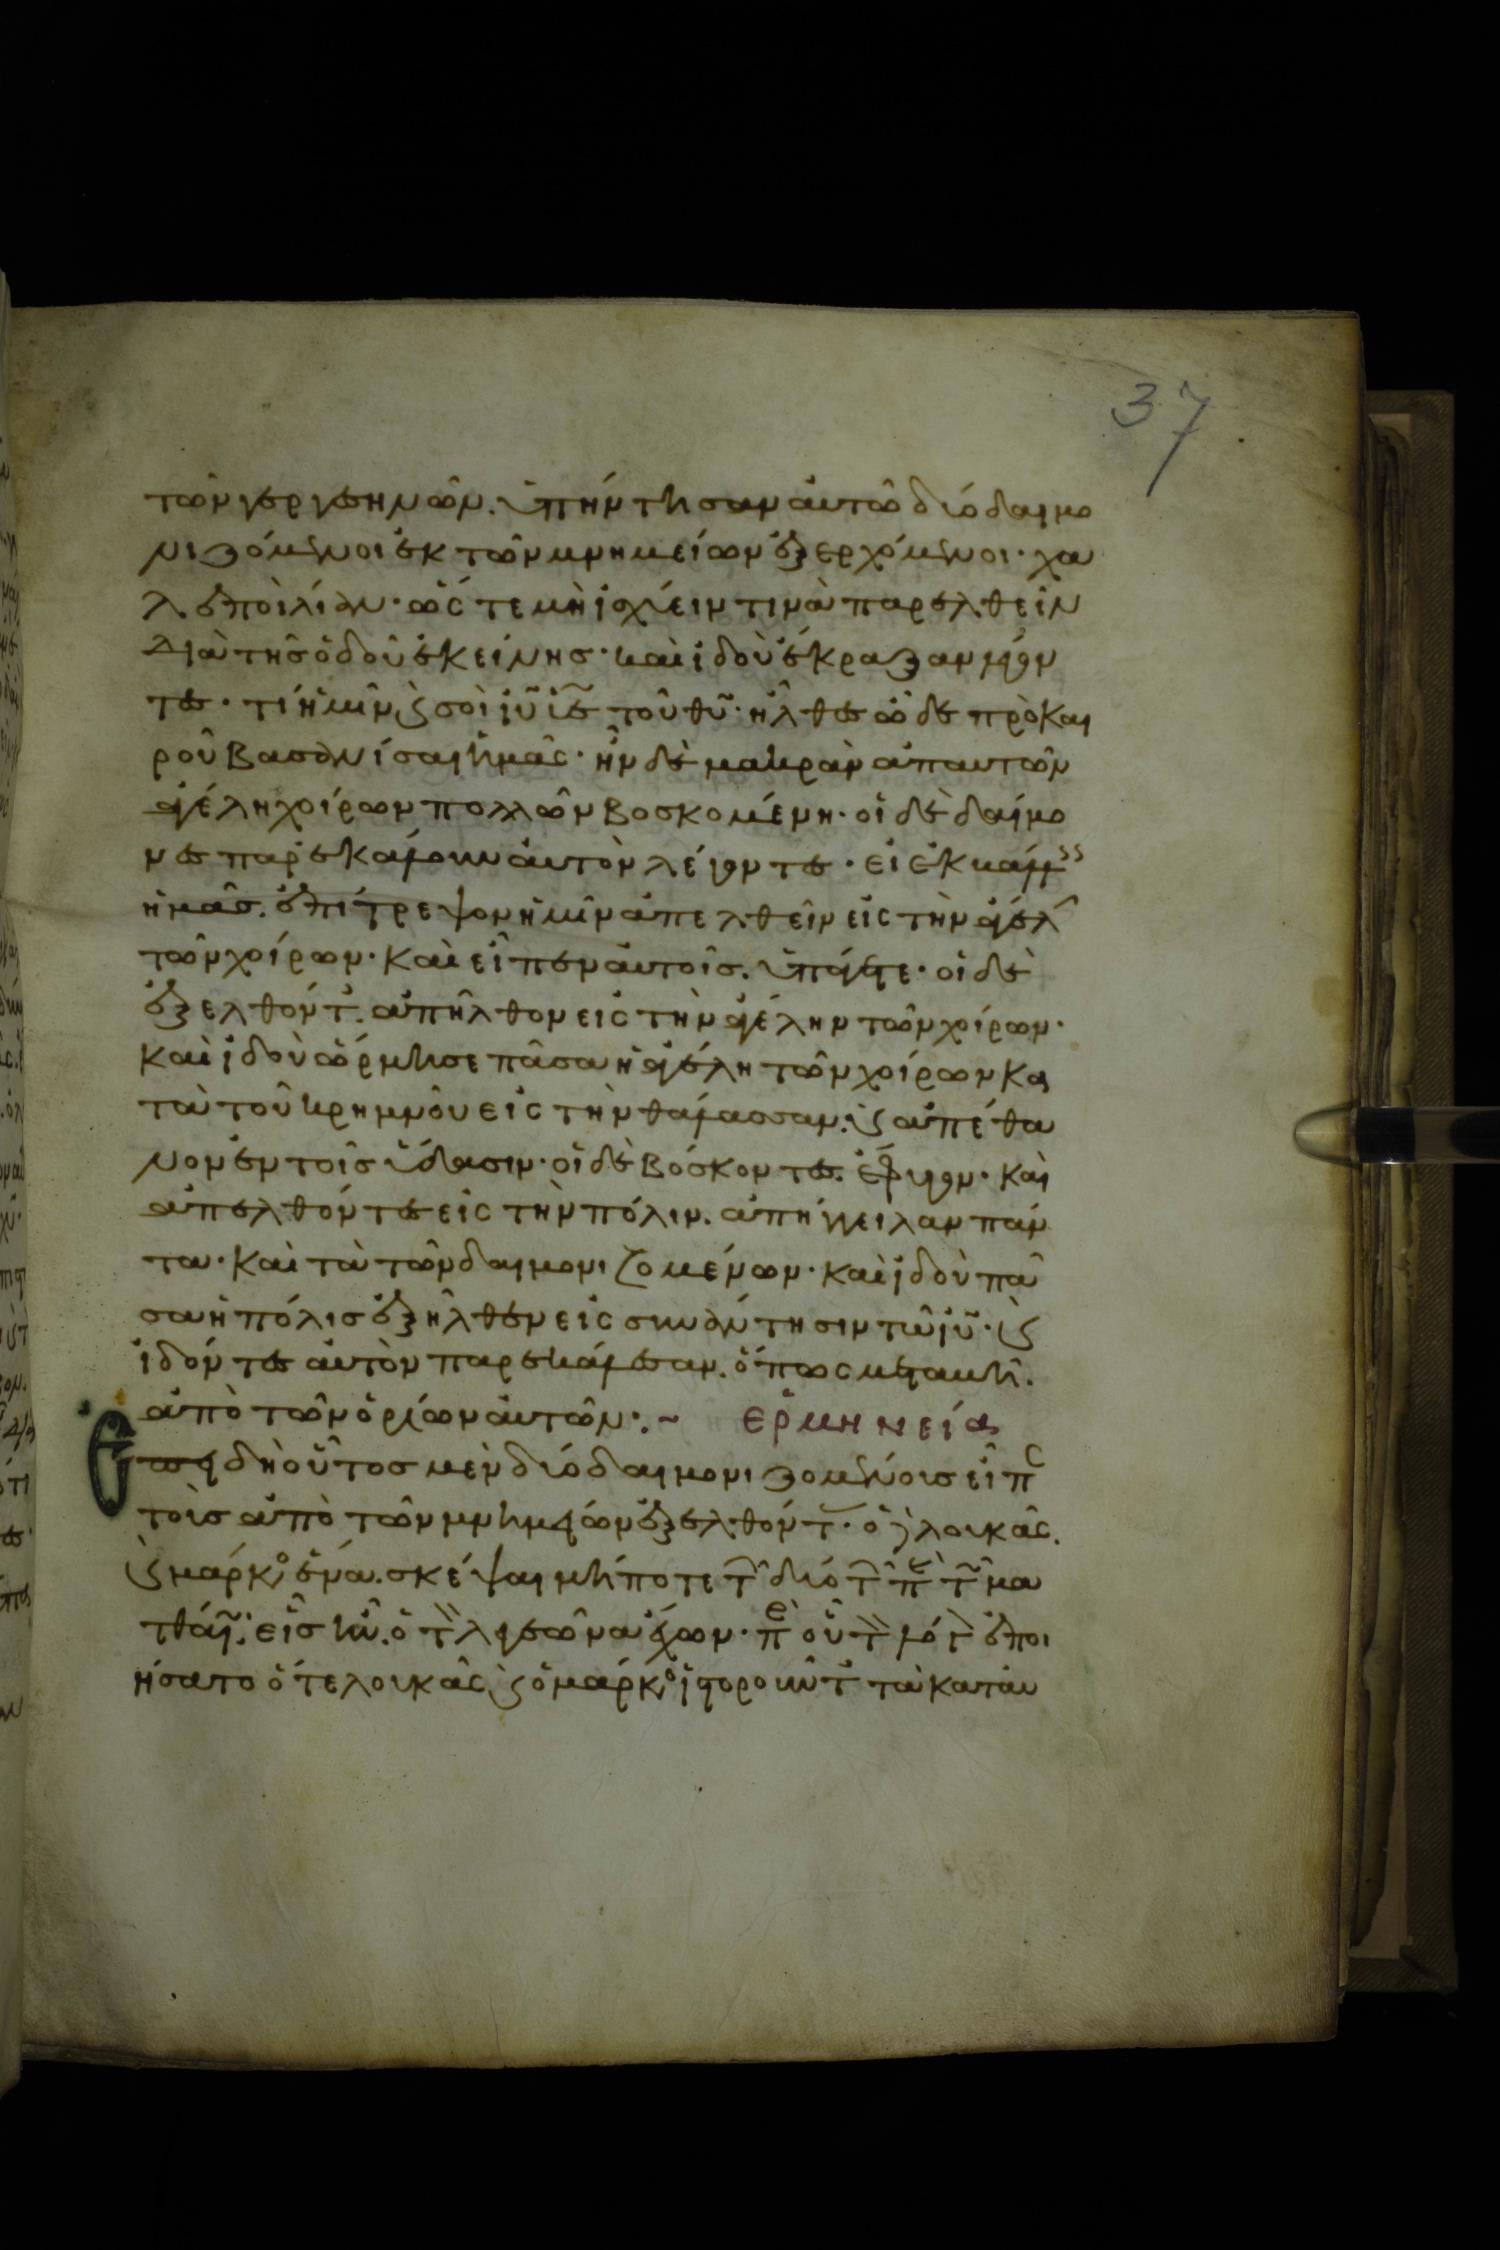 37
τῶν γεργεσηνῶν. ὑπήντησαν αὐτῶ δύο δαιμο
νιζόμενοι ἐκ τῶν μνημείων ἐξερχόμενοι· χα
λεποὶ λίαν· ὥστε μὴ ἰσχύειν τινὰ παρελθεῖν
διὰ τῆς ὁδοῦ ἐκείνης· καὶ ἰδοὺ ἔκραξαν λέγον
τες· τί ἡμῖν ϗ σοὶ ἰῦ υἱὲ τοῦ θῦ· ἦλθες ὧδε πρὸ και
ροῦ βασανίσαι ἡμᾶς· ἦν δὲ μακρὰν ἀπ αυτῶν
ἀγέλη χοίρων πολλῶν βοσκομένη· οἱ δὲ δαίμο
νες παρεκάλουν αὐτὸν λέγοντες· εἰ ἐκβάλλ
ἡμᾶς. ἐπίτρεψον ἡμῖν ἀπελθεῖν εἰς τὴν ἀγέλ
τῶν χοίρων· καὶ εἶπεν αὐτοῖς. ὑπάγετε· οἱ δὲ
ἐξελθόντ. ἀπῆλθον εἰς τὴν ἀγέλην τῶν χοίρων·
καὶ ἰδοὺ ὥρμησε πᾶσα ἡ ἀγέλη τῶν χοίρων κα
τὰ τοῦ κρημνοῦ εἰς τὴν θάλασσαν. ϗ ἀπέθα
νον ἐν τοῖς ὕδασιν· οἱ δὲ βόσκοντες. ἔφυγον· καὶ
ἀπελθόντες εἰς τὴν πόλιν. ἀπήγγειλαν πάν
τα· καὶ τὰ τῶν δαιμονιζομένων· καὶ ἰδοὺ πᾶ
σα ἡ πόλις ἐξῆλθεν εἰς συνάντησιν τῶ ἰῦ· ϗ
ἰδόντες αὐτὸν παρεκάλεσαν. ὅπως μεταβῆ.
ἀπὸ τῶν ὁρίων αὐτῶν· ~ ἑρμηνεία
Ἐπειδὴ οὗτος μὲν δύο δαιμονιζομένοις εἶπ
τοῖς ἀπὸ τῶν μνημείων ἐξελθόντ· ὁ λουκᾶς.
ϗ μάρκο ἕνα. σκέψαι μήποτε τ δύο τ π τ μα
ἡσατο ὅ τε λουκᾶς ϗ ὁ μάρκο ἱστοροῦντ τὰ κατ αυ